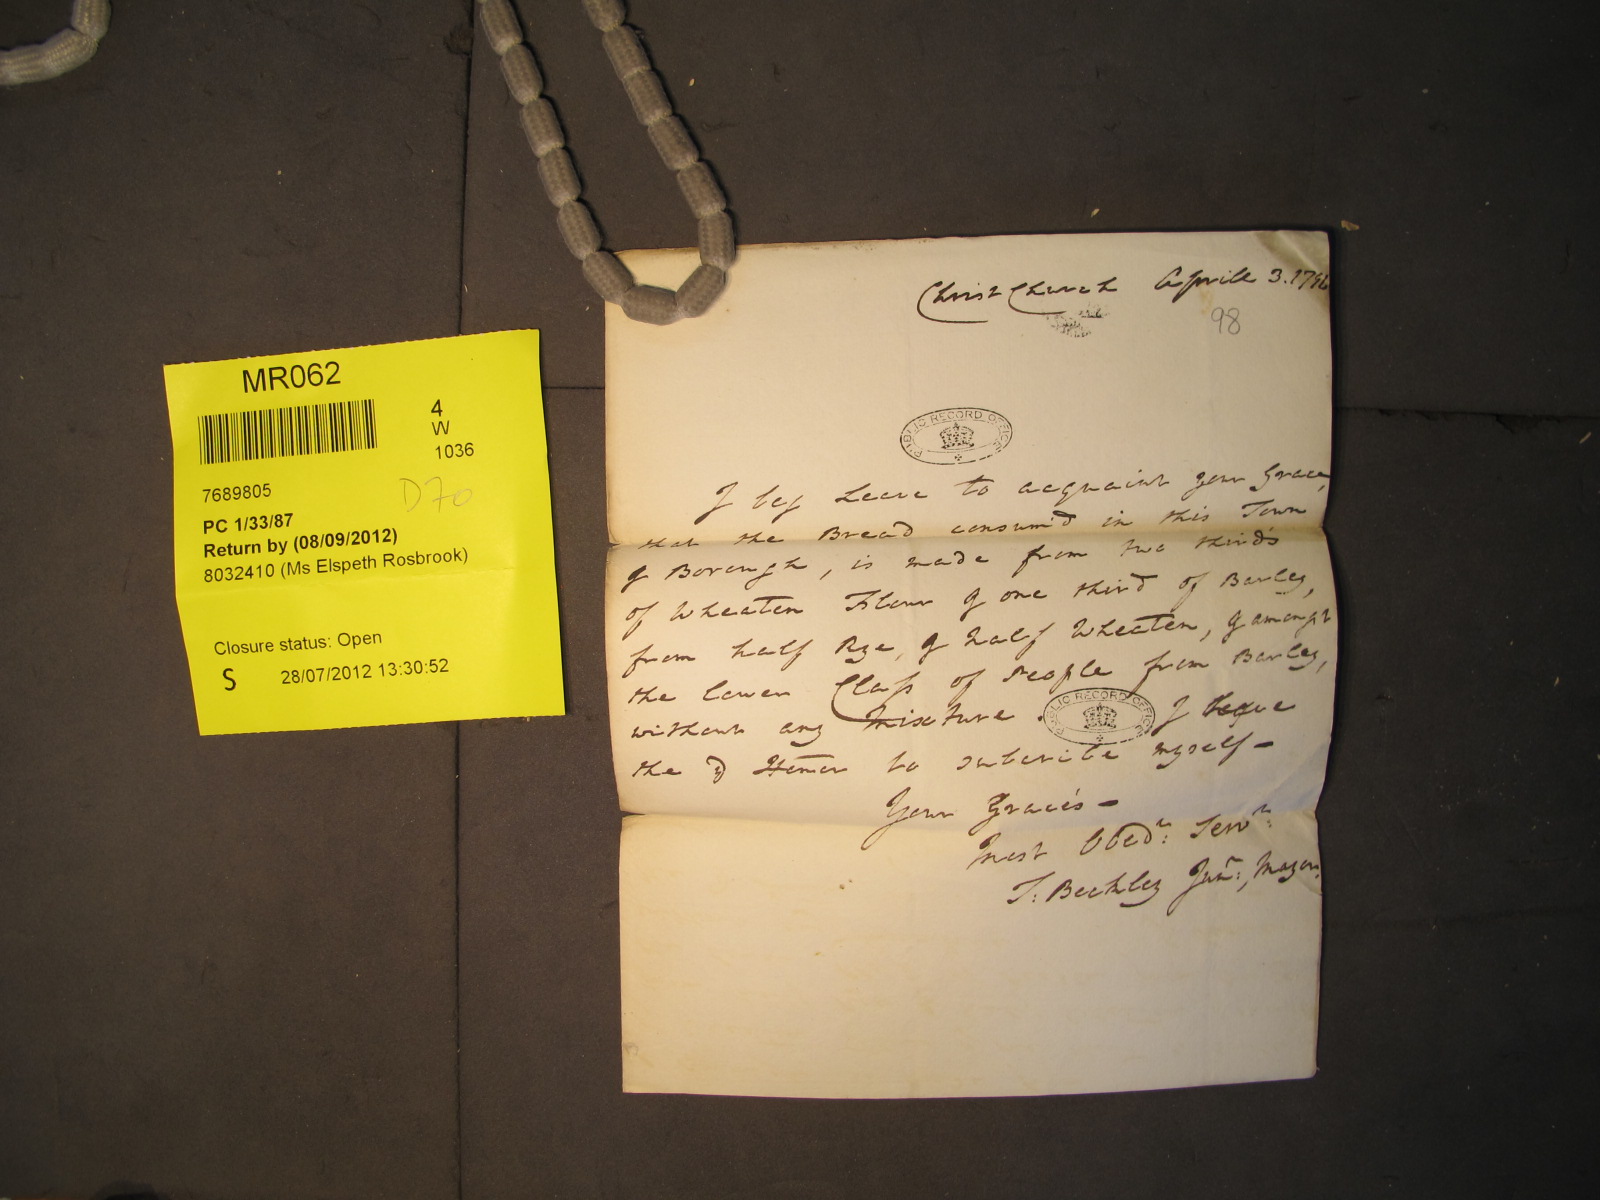 MR062
4
W
1036
7689805
D70
PC 1/33/87
Return by (08/09/2012)
8032410 (Ms Elspeth Rosbrook)
Closure status: Open
S 28/07/2012 13:30:52
Christ Church Aprill 3. 1796
98
PUBLIC RECORD OFFICE
I beg Leave to acquaint your Grace,
that the Bread consum'd in this Town
& Borough, is made from two third's
of Wheaten Flour & one third of Barley,
from half Rye, & half Wheaten, & amongst
the lower Class of People from Barley,
without any Mixture. I have
PUBLIC RECORD OFFICE
the Honor to subscribe myself —
Your Grace's —
most Obedt: Servt:
T: Beckley Junr:, Mayor.